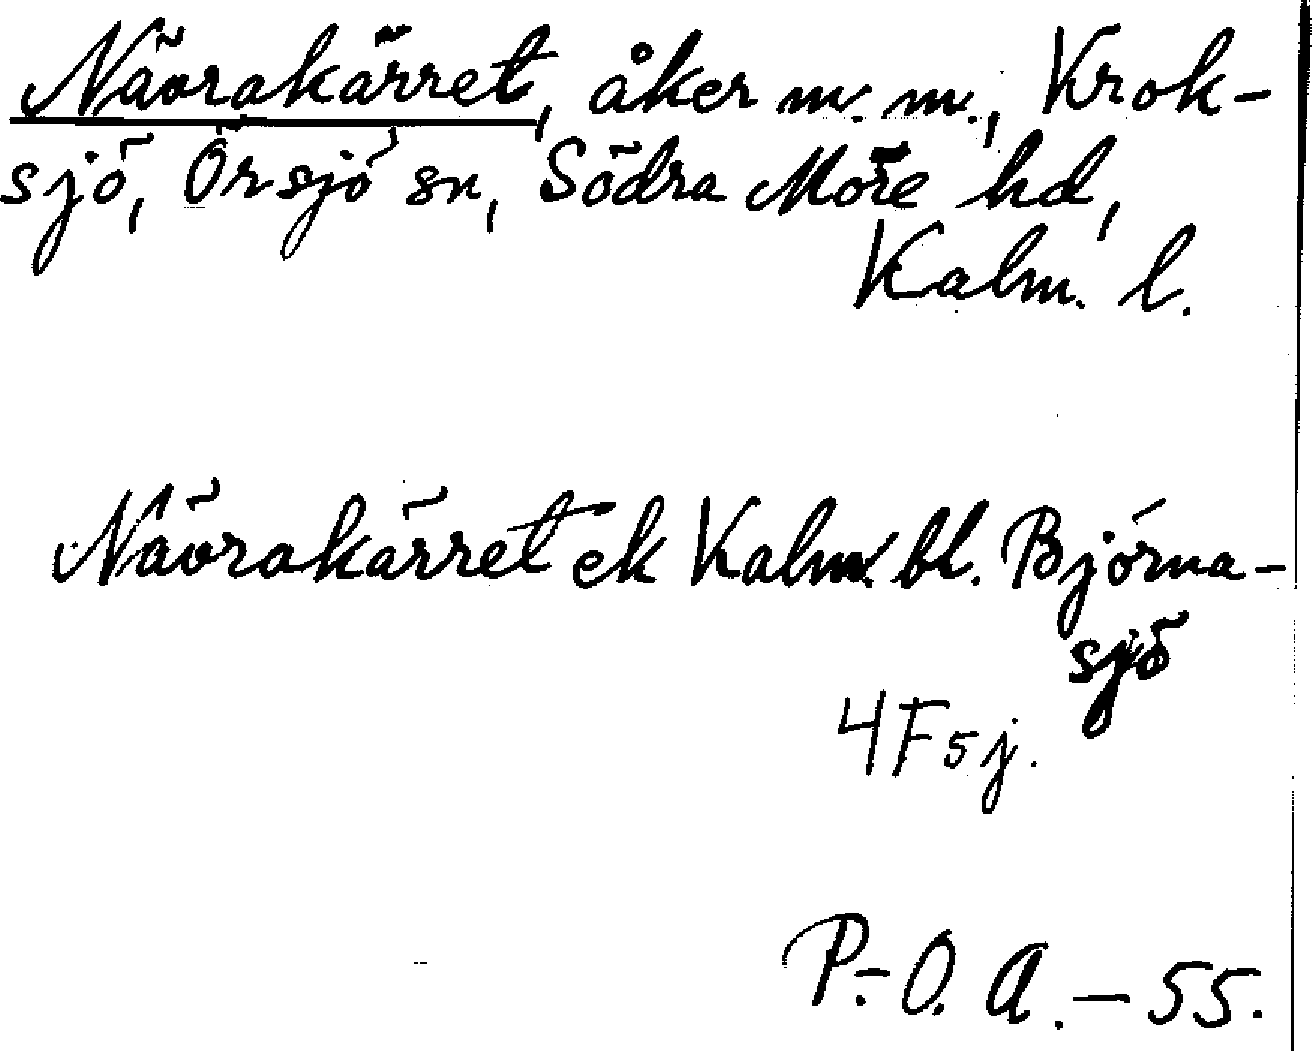 Nävrakärret, åker m. m., Krok-
sjö, Örsjö sn, Södra Möre hd,
Kalm. l.
Nävrakärret ek Kalm. bl. Björna-
sjö
4F5j.
P.-O. A. - 55.